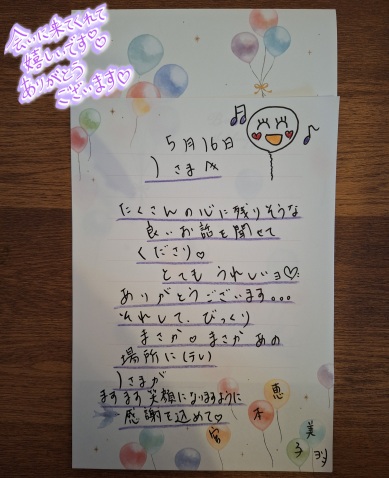 会いに来てくれて
嬉しいです♡
ありがとう
ございます♡
5月16日
さま
たくさんの心に残りそうな
良いお話を聞せて
くださり♡
とてもうれしいョ♡
ありがとうございます。。。
それして、びっくり
まさか♡まさかあの
場所に(テレ)
さまが
ますます笑顔になりますように
感謝を込めて♡
宮本恵美子